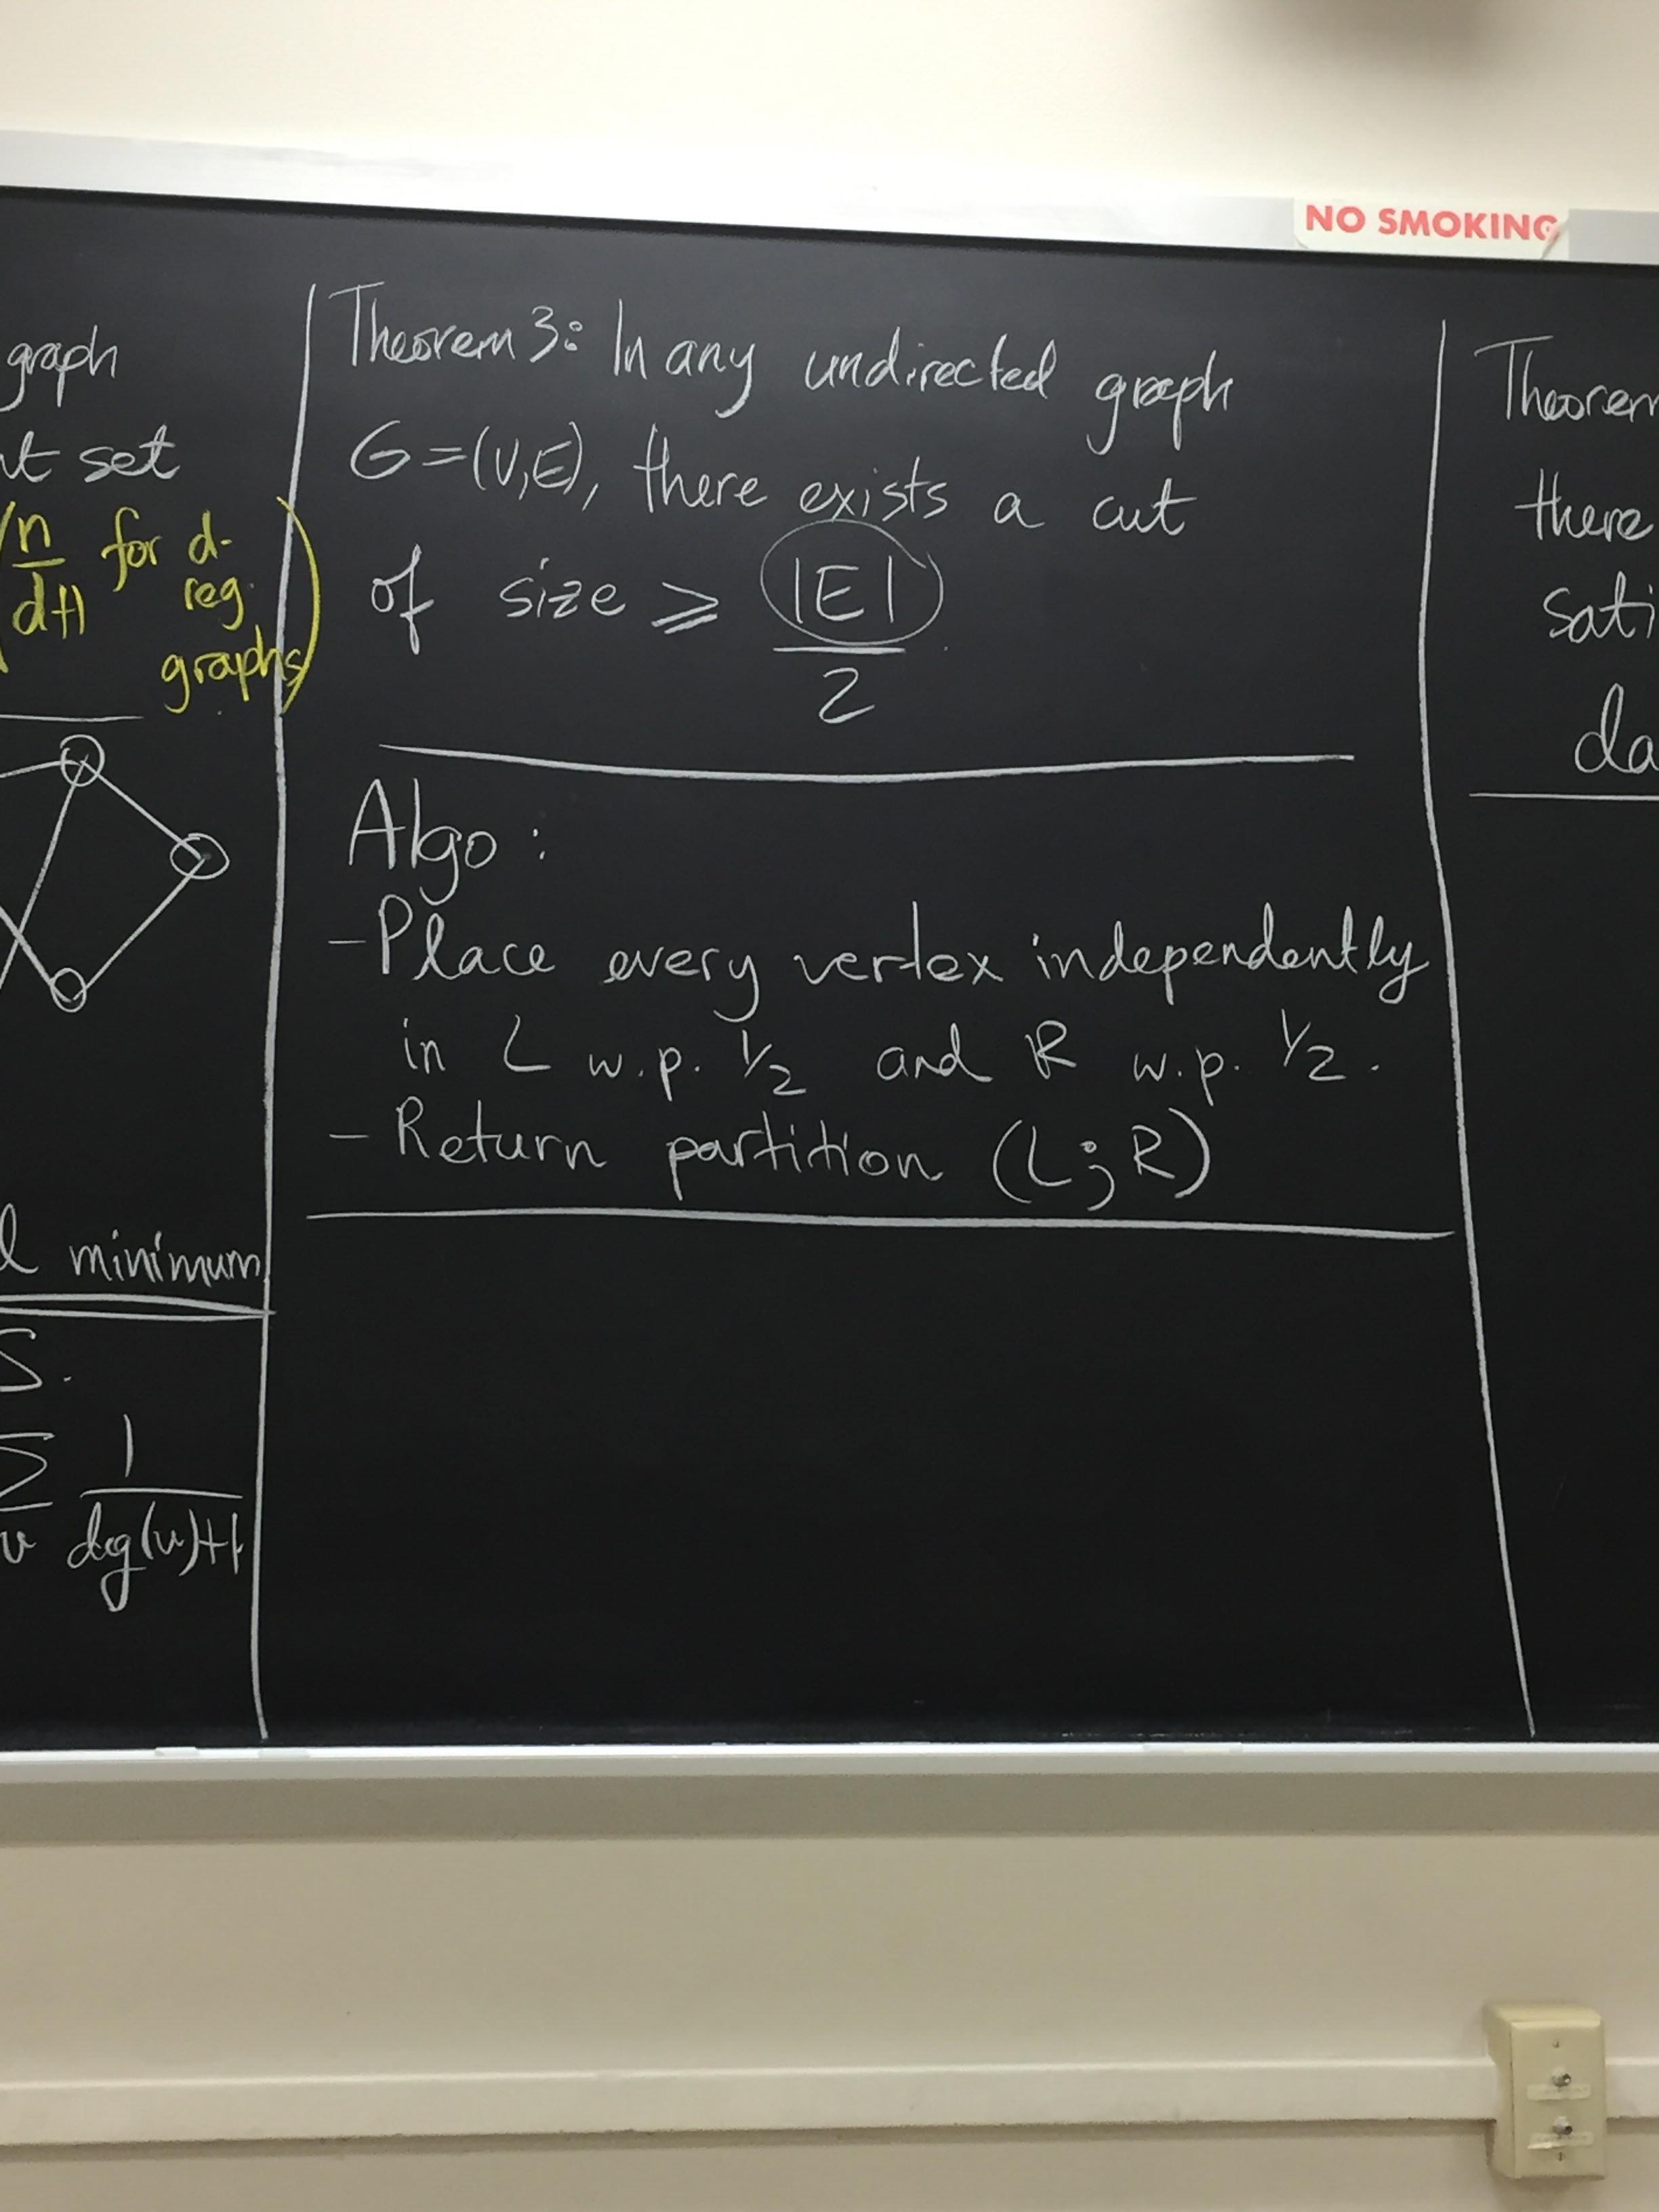 NO SMOKING
graph
set
n/(d+1) for d-
reg.
graphs)
minimum
S.
∑ 1/(deg(v)+1)
v
Theorem 3: In any undirected graph
G=(V,E), there exists a cut
of size ⩾ |E|/2
Algo:
-Place every vertex independently
in L w.p. 1/2 and R w.p. 1/2.
- Return partition (L; R)
Theorem
there